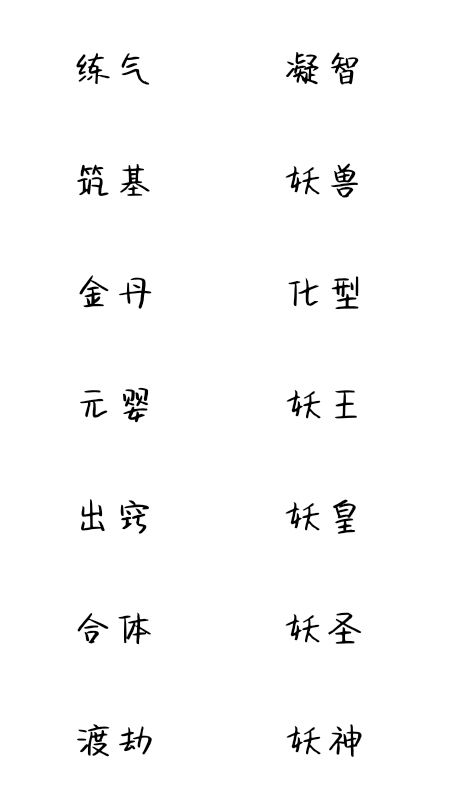 练气 凝智
筑基 妖兽
金丹 化型
元婴 妖王
出窍 妖皇
合体 妖圣
渡劫 妖神